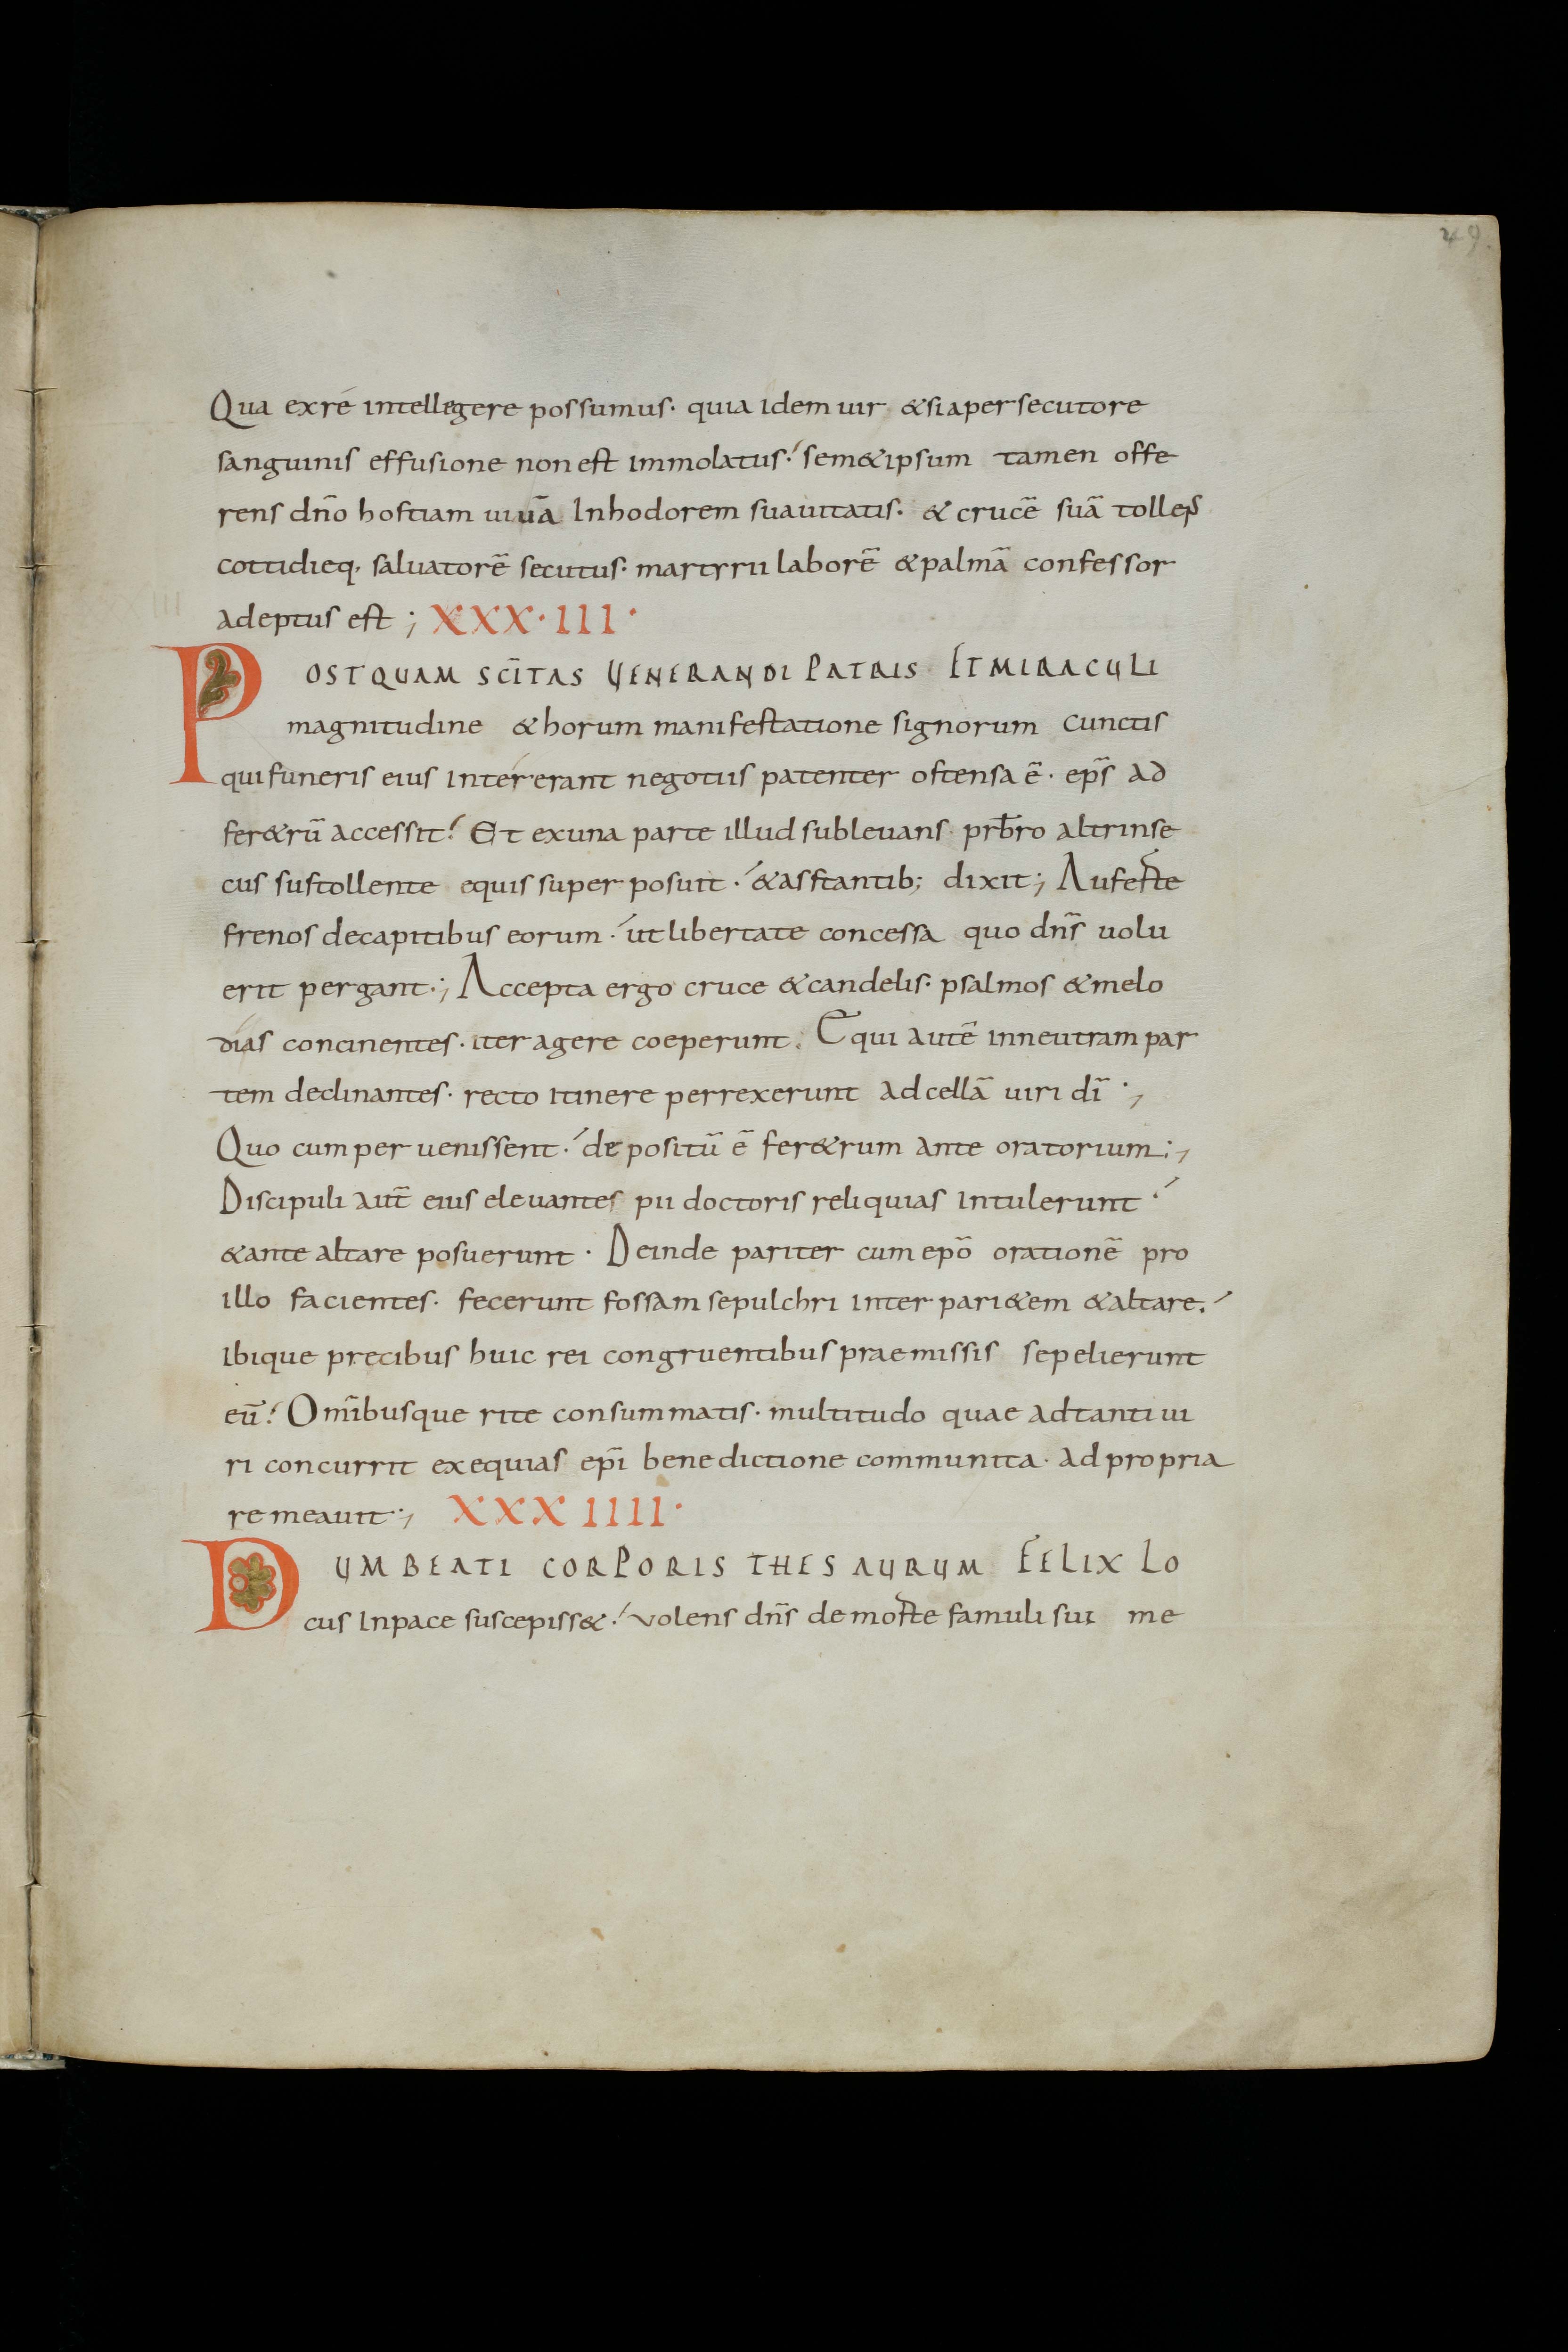 49.
Qua exré intellegere possumus· quia idem uir &siapersecutore
sanguinis effusione non est immolatus·́ sem&ipsum tamen offe
rens dn̄o hostiam uiuā Inhodorem suauitatis· & crucē suā tollens
cottidieq· saluatorē secutus· martyrii laborē &palmā confessor
adeptus est ; XXX·III·
POSTQUAM SCĪTAS VENERANDI PATRIS ETMIRACULI
magnitudine &horum manifestatione signorum cunctis
qui funeris eius intererant negotiis patenter ostensa ē· ep̄s ad
fer&rū accessit! Et exuna parte illud subleuans· prb̄ro altrinse
cus sustollente equis super posuit·́ &asstantib; dixit; Auferte
frenos decapitibus eorum·́ ut libertate concessa quo dn̄s uolu
erit pergant·; Accepta ergo cruce &candelis· psalmos &melo
dias concinentes· iter agere coeperunt. Equi autē inneutram par
tem declinantes· recto itinere perrexerunt adcellā uiri dī·;
Quo cum peruenissent·́ depositū ē fer&rum ante oratorium·;
Discipuli aut̄ eius eleuantes pii doctoris reliquias intulerunt·́
&ante altare posuerunt· Deinde pariter cum ep̄o orationē pro
illo facientes· fecerunt fossam sepulchri inter pari&em &altare·́
ibique precibus huic rei congruentibus praemissis sepelierunt
eū! Om̄ibusque rite consummatis· multitudo quae adtanti ui
ri concurrit exequias ep̄i benedictione communita· ad propria
remeauit·; XXXIIII·
DUM BEATI CORPORIS THESAURUM FELIX LO
cus Inpace suscepiss&·́ volens dn̄s de morte famuli sui me